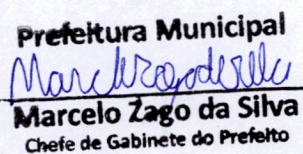 Prefeitura Municipal
Marcelo Zago da Silva
Chefe de Gabinete do Prefeito